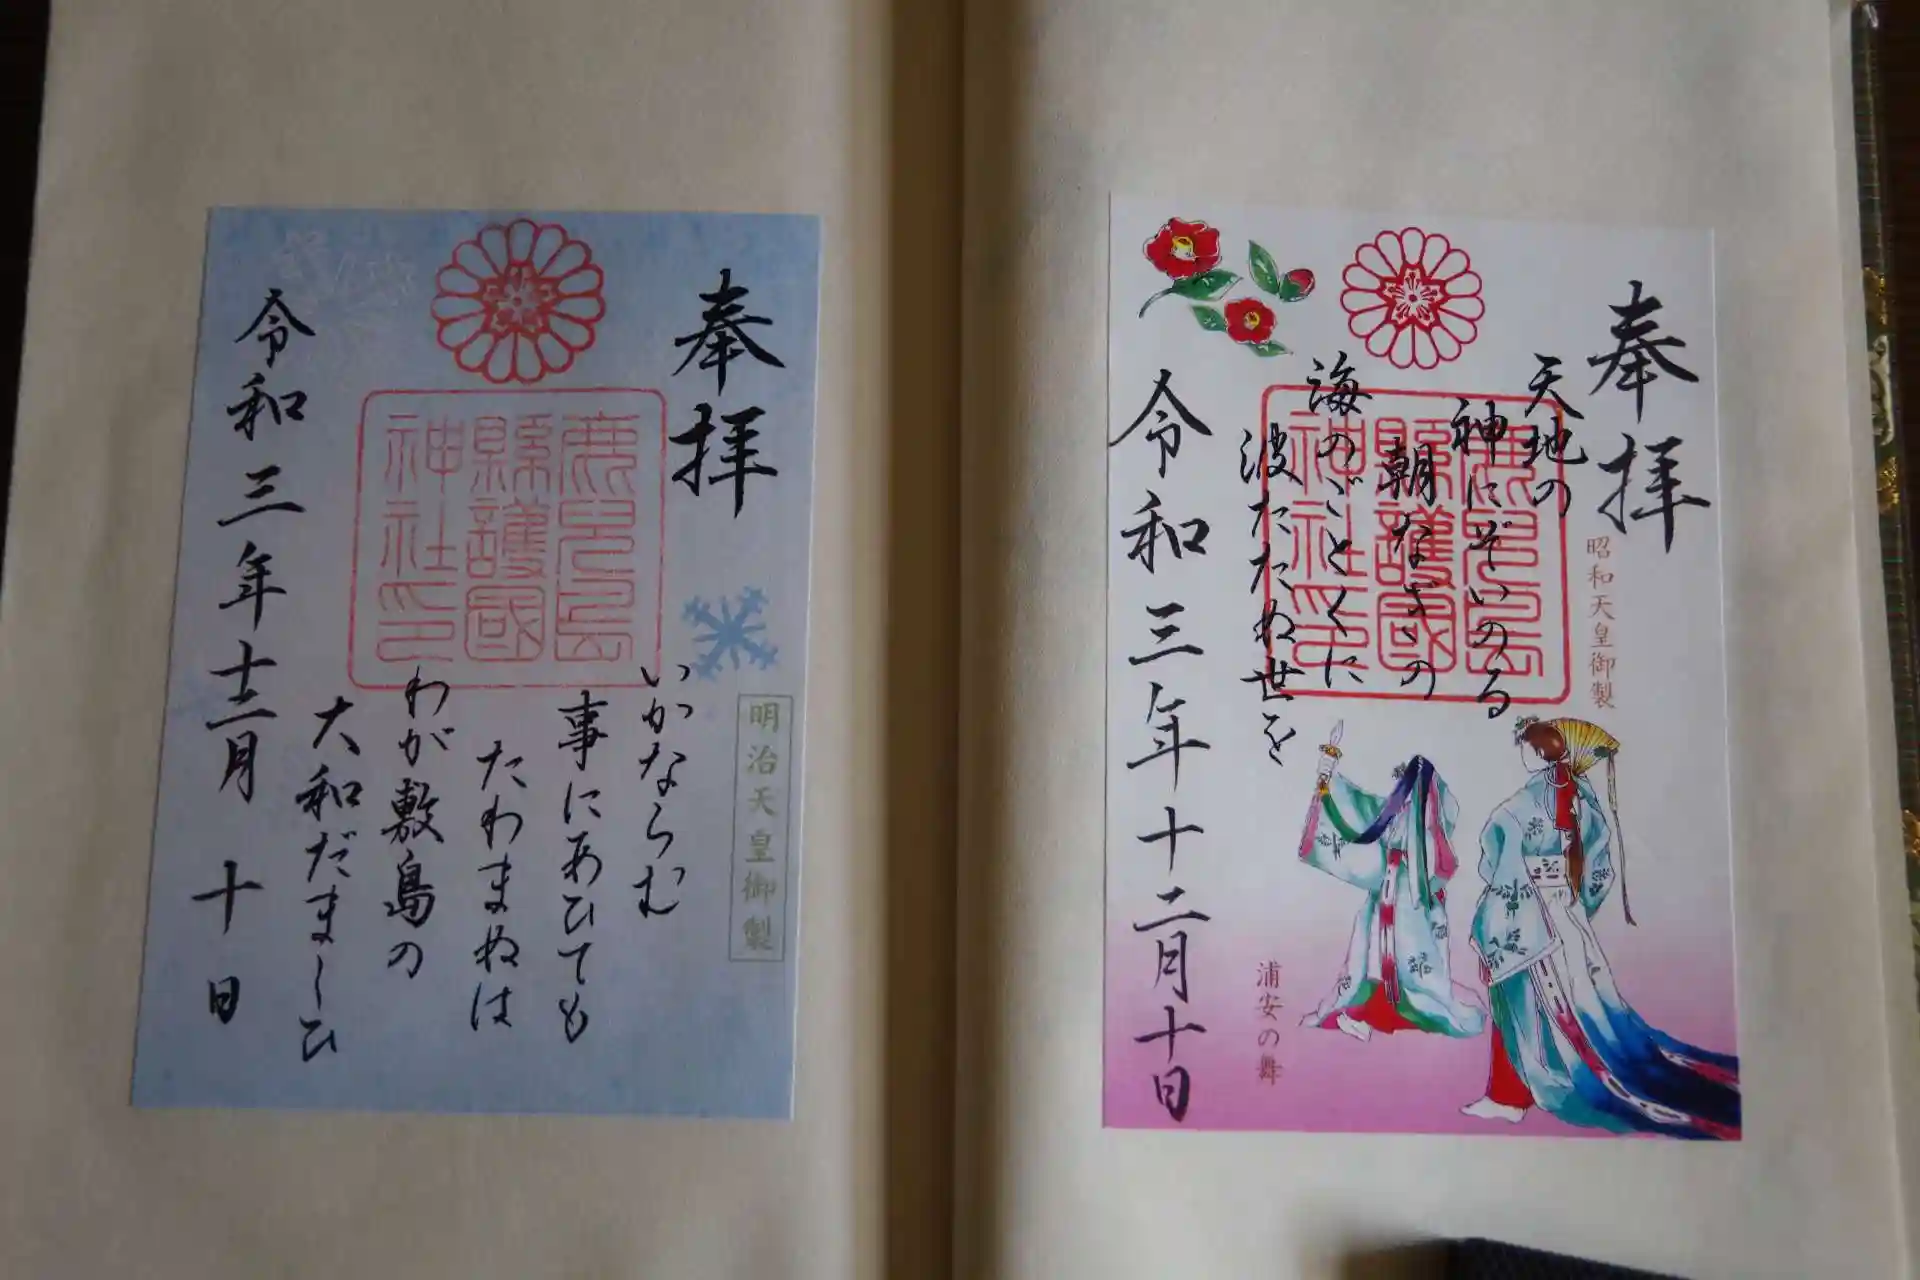 奉拝
天地の
神にぞいのる
朝なぎの
海のごとくに
波たたぬ世を
令和三年十二月十日
昭和天皇御製
浦安の舞
鹿児島
縣護國
神社印
奉拝
明治天皇御製
いかならむ
事にあひても
たわまぬは
わが敷島の
大和だましひ
令和三年十二月十日
鹿児島
縣護國
神社印